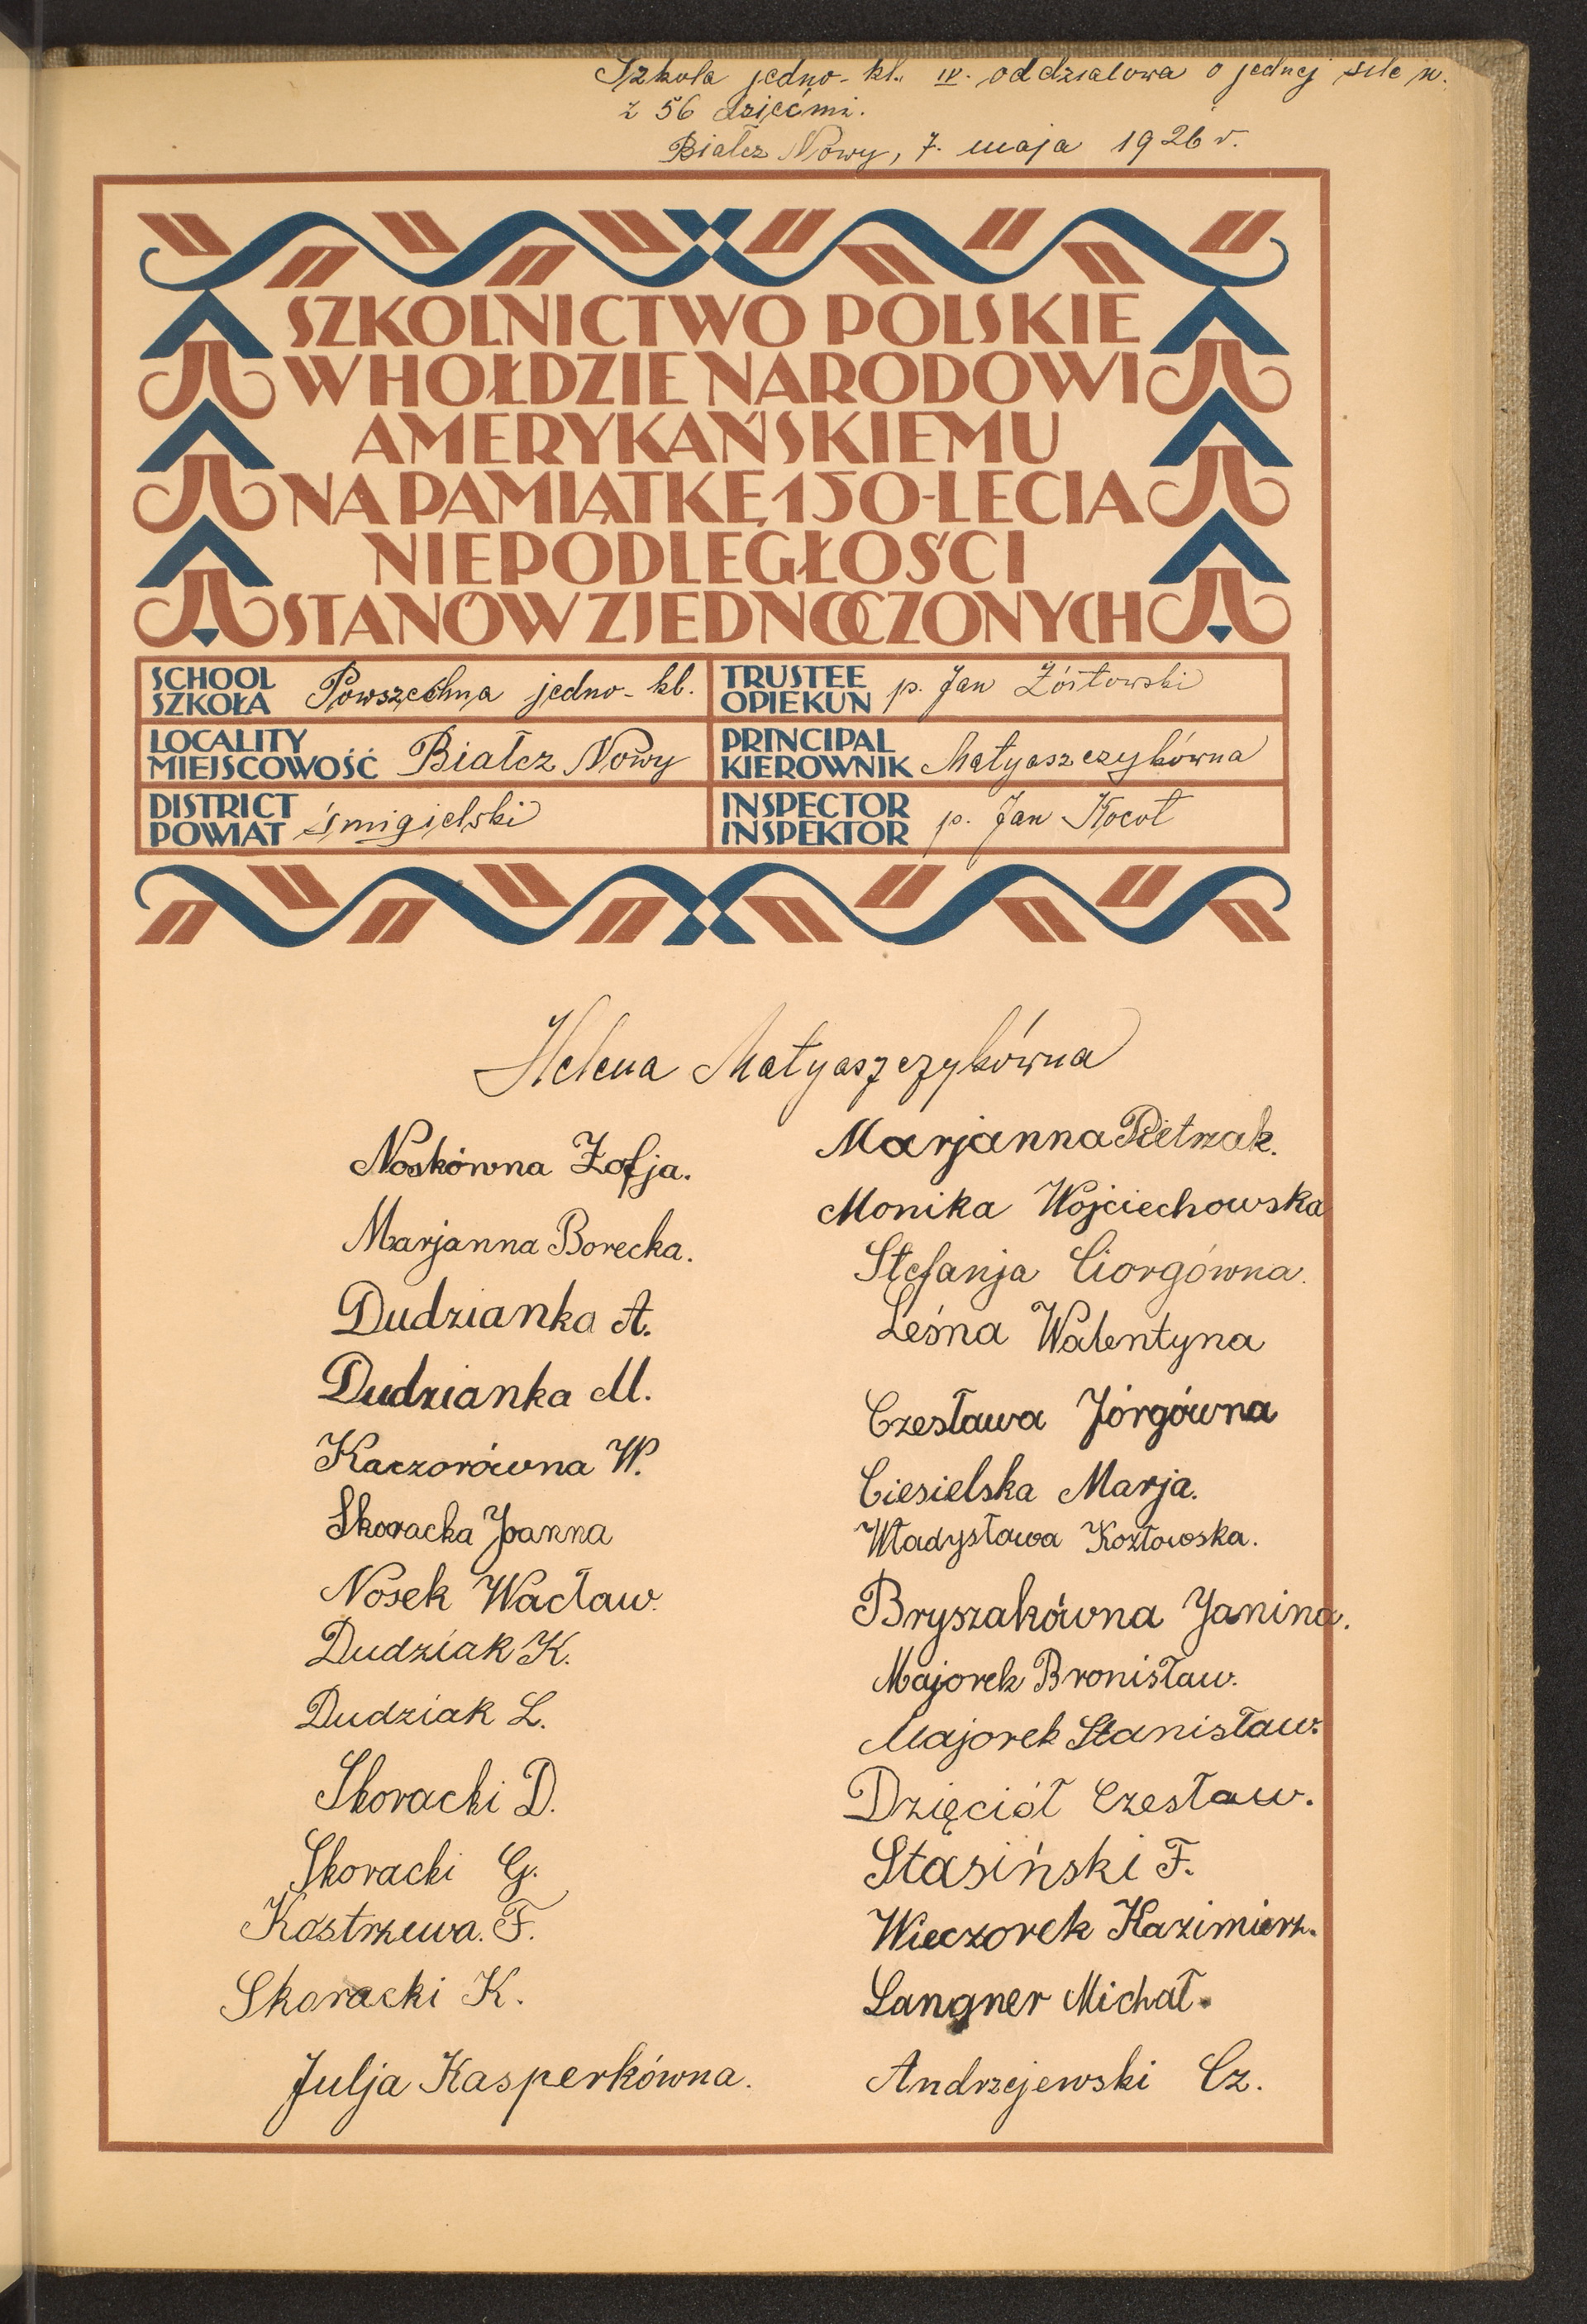 Szkoła jedno-kl. IV. oddziałowa o jednej sile n.
z 56 dziećmi.
Białcz Nowy, 7. maja 1926 r.
SZKOLNICTWO POLSKIE
W HOŁDZIE NARODOWI
AMERYKAŃSKIEMU
NA PAMIĄTKĘ 150-LECIA
NIEPODLEGŁOŚCI
STANÓW ZJEDNOCZONYCH
SCHOOL
SZKOŁA Powszechna jedno-kl.
TRUSTEE
OPIEKUN p. Jan Żółtowski
LOCALITY
MIEJSCOWOŚĆ Białcz Nowy
PRINCIPAL
KIEROWNIK Matyaszczykówna
DISTRICT
POWIAT śmigielski
INSPECTOR
INSPEKTOR p. Jan Kocot
Helena Matyaszczykówna
Noskówna Zofja.
Marjanna Borecka.
Dudzianka A.
Dudzianka M.
Kaczorówna W.
Skoracka Joanna
Nosek Wacław.
Dudziak K.
Dudziak L.
Skoracki D.
Skoracki G.
Kostrzewa. F.
Skoracki K.
Julja Kasperkówna.
Marjanna Pietrzak.
Monika Wojciechowska
Stefanja Ciorgówna.
Leśna Walentyna
Czesława Jórgówna
Ciesielska Marja.
Władysława Kozłowska.
Bryszakówna Janina.
Majorek Bronisław.
Majorek Stanisław.
Dzięciół Czesław.
Stasiński F.
Wieczorek Kazimierz.
Langner Michał.
Andrzejewski Cz.